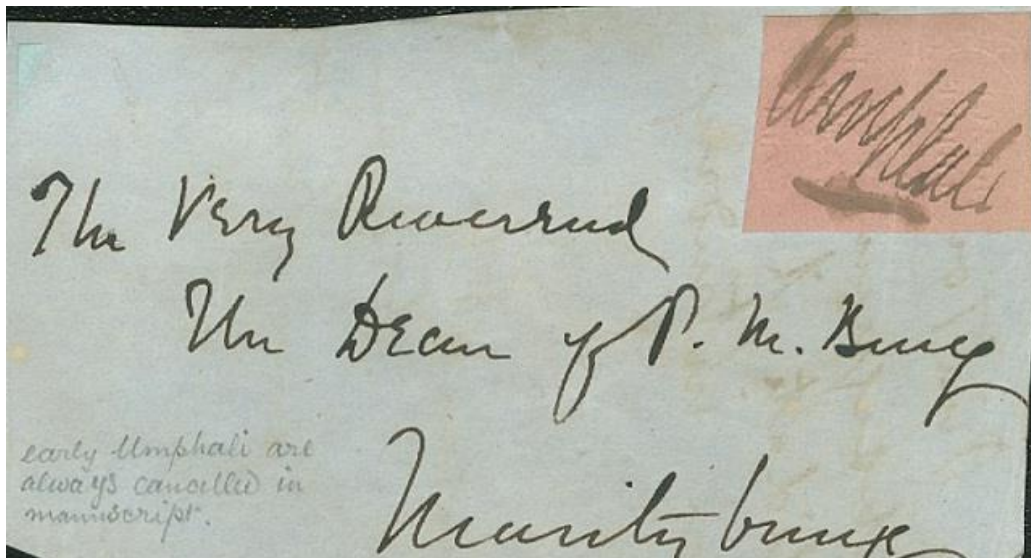 Umphali
The Very Reverend
The Dean of P. M. Burg
Maritzburg
early Umphali are
always cancelled in
manuscript.